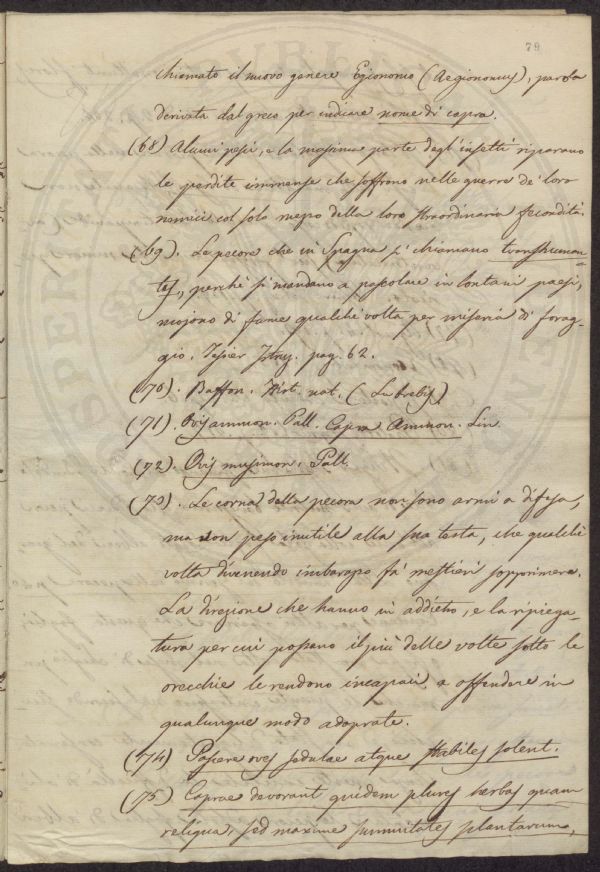 79
chiamato il nuovo genere Egionomo (Aegionomus), parola
derivata dal greco per indicare nome di capra.
(68) Alcuni pesci, e la massima parte degl'insetti riparano
le perdite immense che soffrono nelle guerre de' loro
nemici col solo mezzo della loro straordinaria fecondità.
(69). Le pecore che in Spagna si chiamano transhuman-
tes, perchè si mandano a pascolare in lontani paesi,
mojono di fame qualche volta per miseria di forag-
gio. Tessier Istruz. pag. 62.
(70). Buffon. Hist. nat. (La brebis)
(71). Ovis ammon. Pall. Capra Ammon. Lin.
(72). Ovis musimon. Pall.
(73). Le corna della pecora non sono armi a difesa,
ma son peso inutile alla sua testa, che qualche
volta divenendo imbarazzo fà mestieri sopprimere.
La direzione che hanno in addietro, e la ripiega-
tura per cui passano il più delle volte sotto le
orecchie le rendono incapaci a offendere in
qualunque modo adoprate.
(74) Pascere oves sedulae atque stabiles solent.
(75) Caprae devorant quidem plures herbas quam
reliqua, sed maxime summitates plantarum,